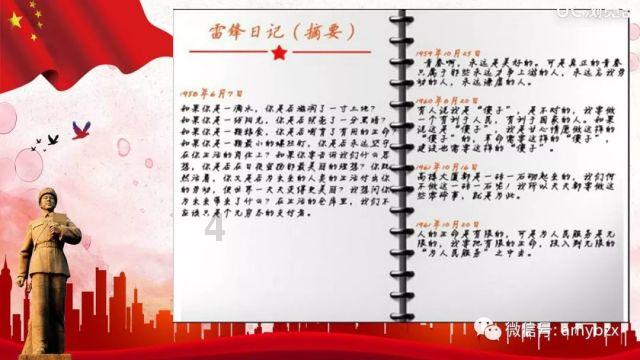 雷锋日记（摘要）
1958年6月7日
如果你是一滴水，你是否滋润了一寸土地？
如果你是一线阳光，你是否照亮了一分黑暗？
如果你是一颗粮食，你是否哺育了有用的生命
如果你是一颗最小的螺丝钉，你是否永远坚守
在你生活的岗位上？如果你要告诉我们什么思
想，你是否在日夜宣扬那最美丽的理想？你既
然活着，你又是否为未来的人类的生活付出你
的劳动，使世界一天天变得更美丽？我想问你
为未来带来了什么？在生活的仓库里，我们不
应该只是个无穷尽的支付者。
4
1959年10月25日
青春啊，永远是美好的。可是真正的青春
只属于那些永远力争上游的人，永远忘我劳
动的人，永远谦虚的人。
1960年8月20日
有人说我是“傻子”，是不对的，我要做
一个有利于人民，有利于国家的人。如果
说这是“傻子”，我是甘心情愿做这样的
“傻子”的，革命需要这样的“傻子”，
建设也需要这样的“傻子”。
1961年10月16日
高楼大厦都是一砖一石砌起来的，我们何
不做这一砖一石呢！我所以天天都要做这
些零碎事，就是为此。
1961年10月20日
人的生命是有限的，可是为人民服务是无
限的，我要把有限的生命，投入到无限的
“为人民服务”之中去。
微信号：amybzx